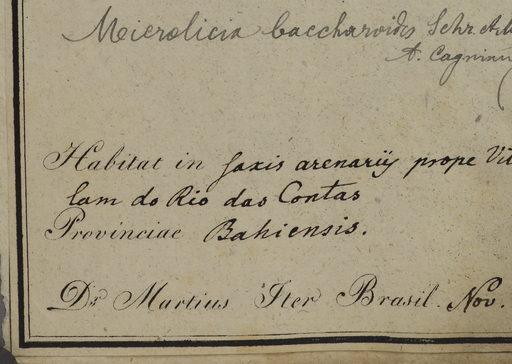 Microlicia baccharoides Schr.
A. Cagnin
Habitat in saxis arenariis prope Vil
lam do Rio das Contas
Provinciae Bahiensis.
Dr Martius Iter Brasil. Nov.